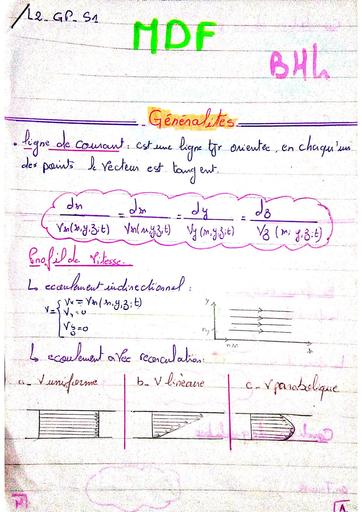 L2_GP_S1
MDF
BHL
Généralités
• ligne de courant: c'est une ligne tjr orientée, en chaqu'un
des points le vecteur est tangent.
dx/Vx(x,y,z,t) = dx/Vx(x,y,z,t) = dy/Vy(x,y,z,t) = dz/Vz(x,y,z,t)
Profil de vitesse.
↳ ecoulement indirectionnel:
V = { Vx = Vx(x,y,z,t)
Vy = 0
Vz = 0
y
x
↳ ecoulement avec recirculation:
a_ V uniforme b_ V lineaire c_ V parabolique